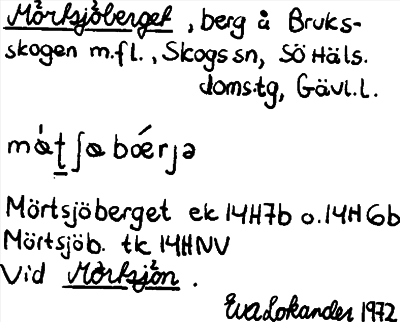 Mörtsjöberget, berg å Bruks-
skogen m.fl., Skogs sn, Sö Häls.
doms.tg, Gävl.l.
Mörtsjöberget ek 14H7b o. 14H6b
Mörtsjöb. tk 14HNV
Vid Mörtsjön.
Eva Lokander 1972